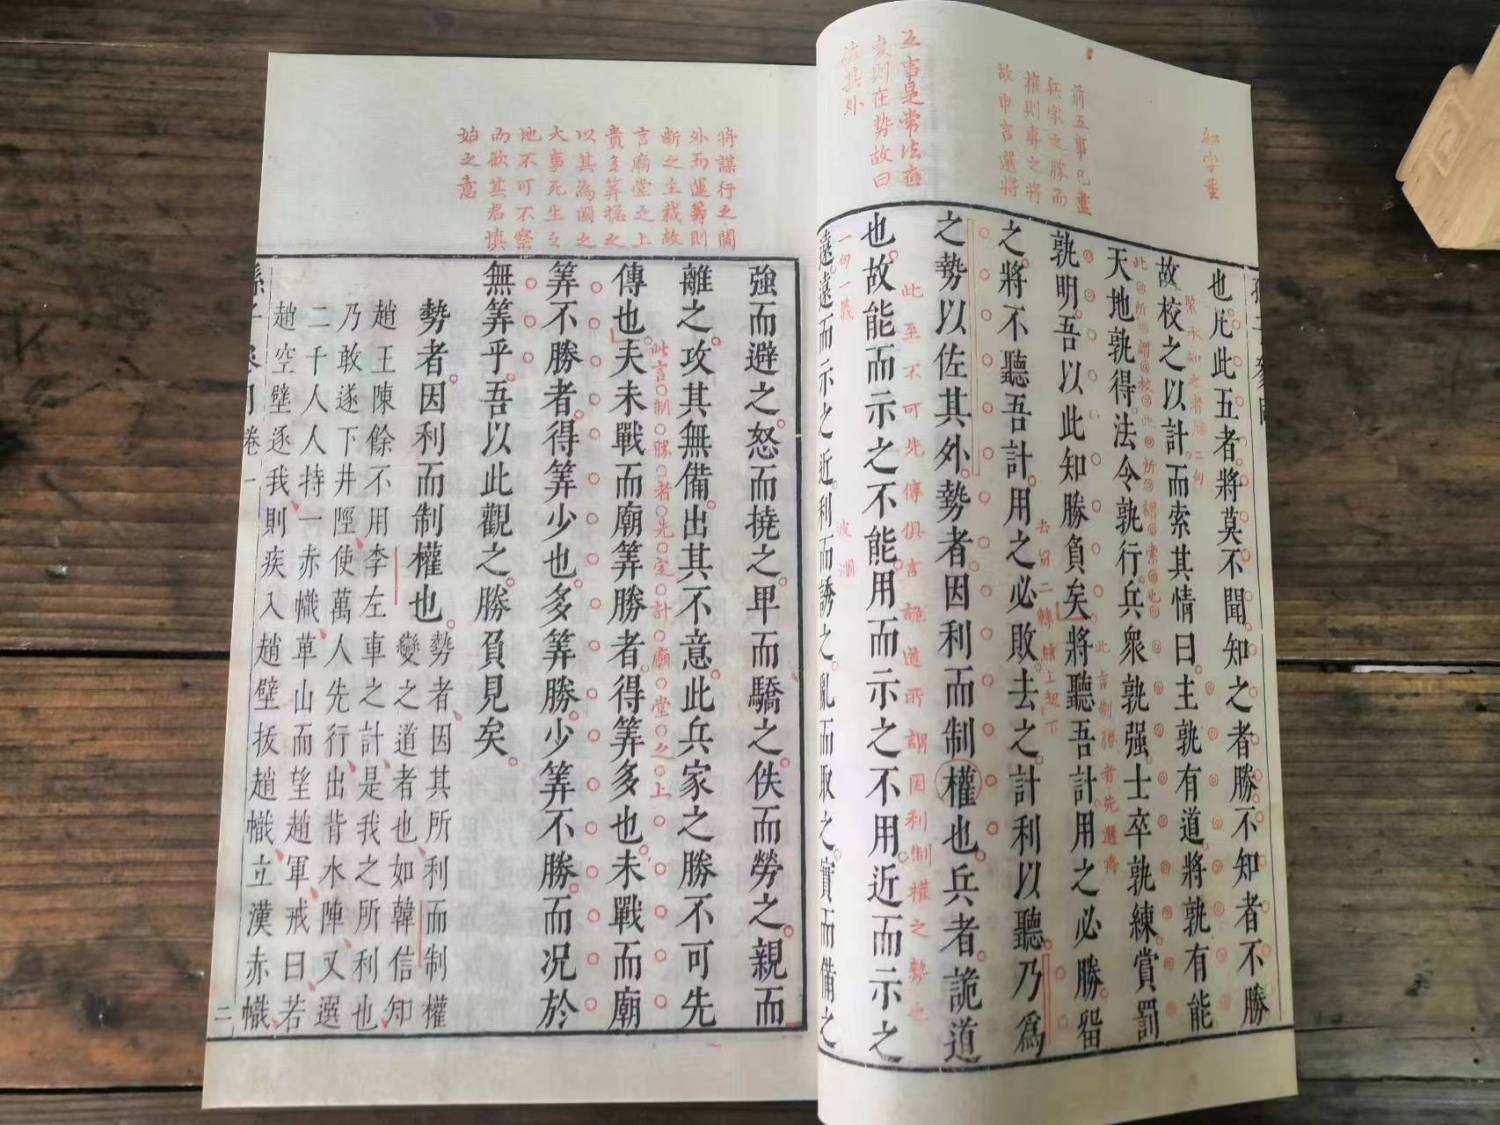 和字重
前五事已盡
兵家之勝而
權則專之將
故申言選將
五事是常法應
變則在勢故曰
佐其外
也凡此五者將莫不聞知之者勝不知者不勝
故校之以計而索其情曰主孰有道將孰有能
天地孰得法令孰行兵衆孰强士卒孰練賞罰
孰明吾以此知勝負矣將聽吾計用之必勝留
此言制勝者先選將
之將不聽吾計用之必敗去之計利以聽乃爲
去留二轉頂上起下
之勢以佐其外勢者因利而制權也兵者詭道
也故能而示之不能用而示之不用近而示之
此至不可先傳俱言詭道所謂因利制權之勢也
遠遠而示之近利而誘之亂而取之實而備之
一句一義
波瀾
將謀行之閫
外而運籌則
斷之主裁故
言廟堂之上
貴多筭總之
以其為國之
大事死生之
地不可不察
而欲其君慎
始之意
強而避之怒而撓之卑而驕之佚而勞之親而
離之攻其無備出其不意此兵家之勝不可先
傳也夫未戰而廟筭勝者得筭多也未戰而廟
此言制勝者先定計廟堂之上
筭不勝者得筭少也多筭勝少筭不勝而况於
無筭乎吾以此觀之勝負見矣
勢者因利而制權也
勢者因其所利而制權
變之道者也如韓信知
趙王陳餘不用李左車之計是我之所利也
乃敢遂下井陘使萬人先行出背水陣又選
二千人人持一赤幟萆山而望趙軍戒曰若
趙空壁逐我則疾入趙壁拔趙幟立漢赤幟
卷一
二